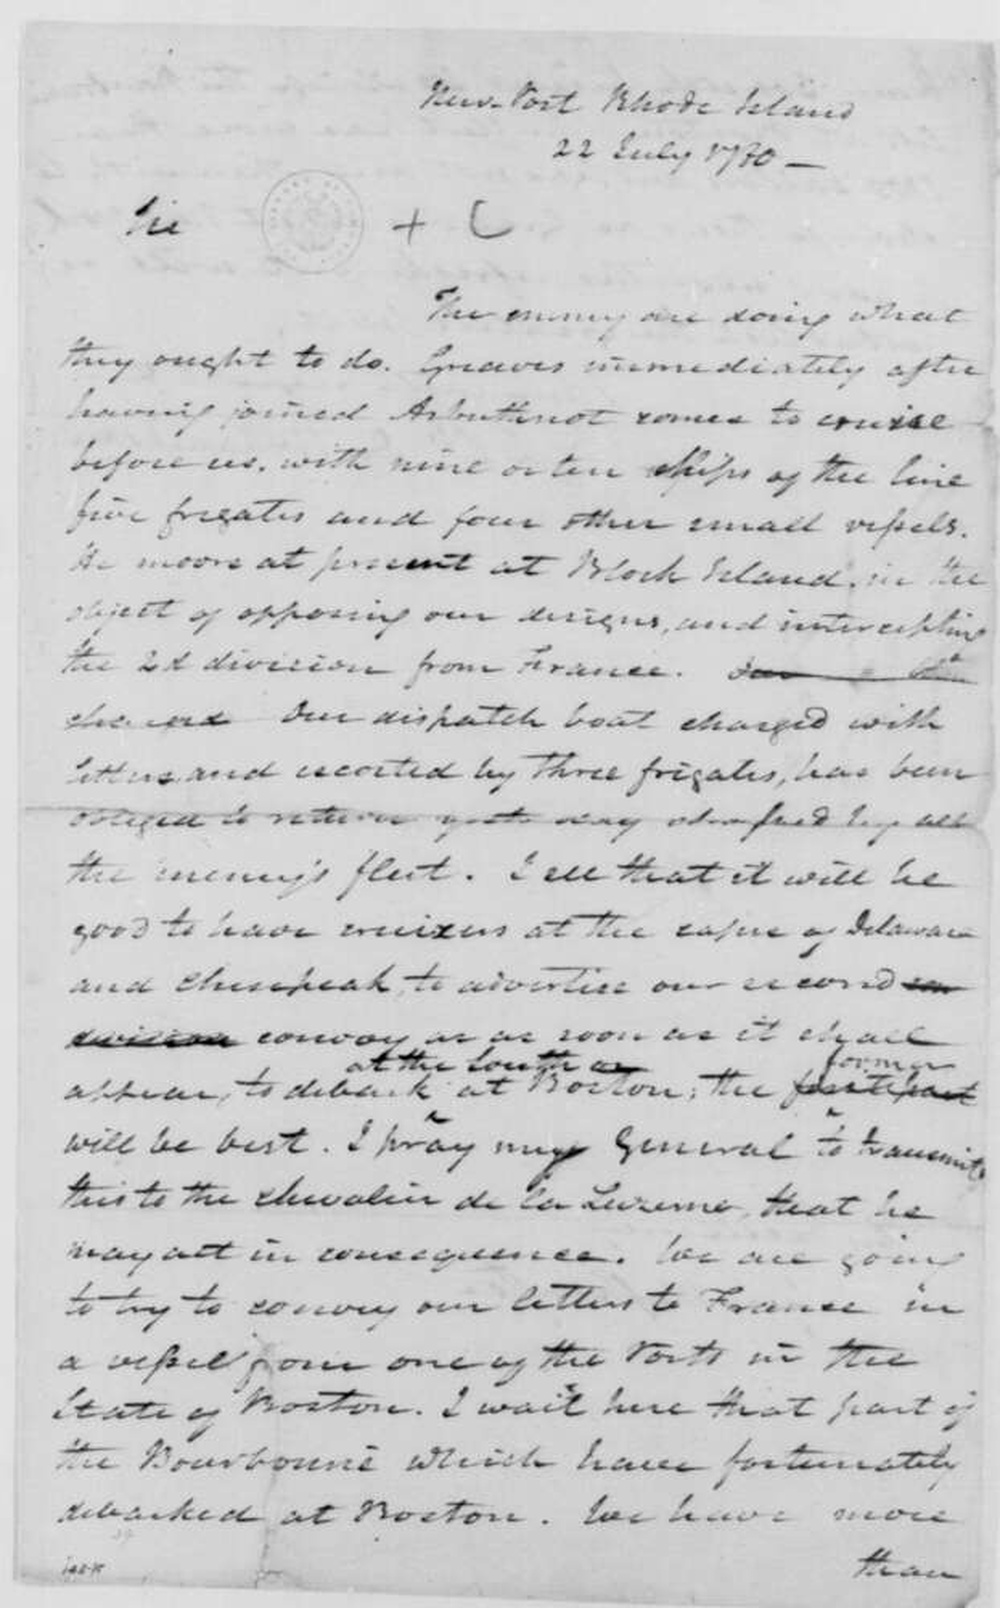 New-Port Rhode Island
22 July 1780 —
Sir + C
The enemy are doing what
they ought to do. Greaves immediately after
having joined Arbuthnot comes to cruise
before us, with nine or ten ships of the line
five frigates and four other small vessels.
He moors at present at Block Island, in the
object of opposing our designs, and intercepting
the 2d division from France.
Our dispatch boat charged with
letters and escorted by three frigates, has been
obliged to return yesterday chased by all
the enemy's fleet. I see that it will be
good to have cruizers at the capes of Delaware
and Chesepeak, to advertise our second
division convoy as as soon as it shall
at the South or former
appear, to debark at Boston; the
will be best. I pray my General to transmit
this to the chevalier de la Luzerne, that he
may act in consequence. We are going
to try to convey our letters to France in
a vessel from one of the Ports in the
State of Boston. I wait here that part of
the Bourbonne which have fortunately
debarked at Boston. We have more
than